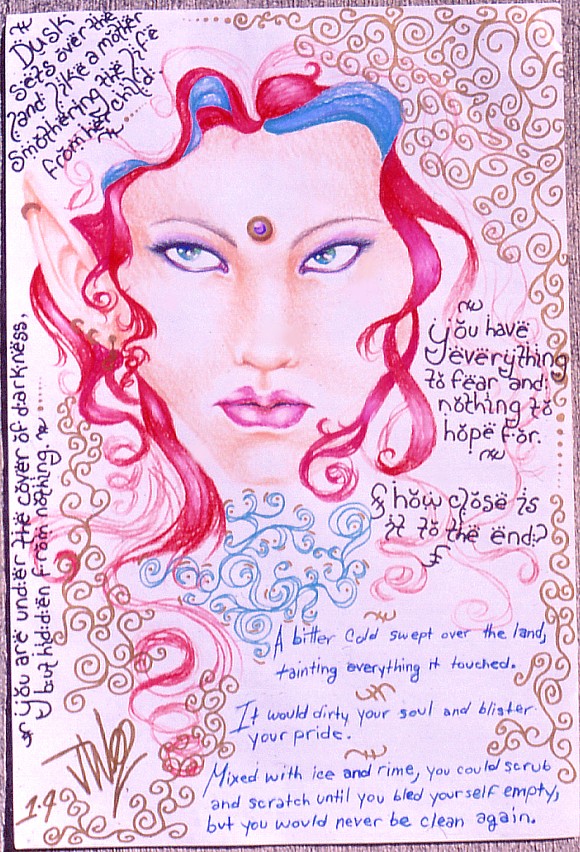 Dusk
sets over the
land like a mother
smothering the life
from her child.
you have
everything
to fear and
nothing to
hope for.
how close is
it to the end?
you are under the cover of darkness,
but hidden from nothing.
A bitter cold swept over the land,
tainting everything it touched.
It would dirty your soul and blister
your pride.
Mixed with ice and rime, you could scrub
and scratch until you bled yourself empty,
but you would never be clean again.
1.4